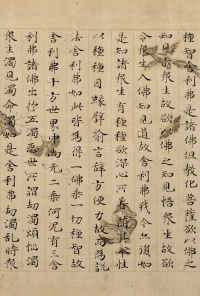 種智舍利弗是諸佛但教化菩薩欲以佛之
知見示衆生故欲以佛之知見悟衆生故欲
令衆生入佛知見道故舍利弗我今亦復如
是知諸衆生有種種欲深心所著隨其本性
以種種因緣譬喻言辭方便力故而為說
法舍利弗如此皆為得一佛乘一切種智故
舍利弗十方世界中尚无二乘何況有三舍
利弗諸佛出於五濁惡世所謂劫濁煩惱濁
衆生濁見濁命濁如是舍利弗劫濁亂時衆